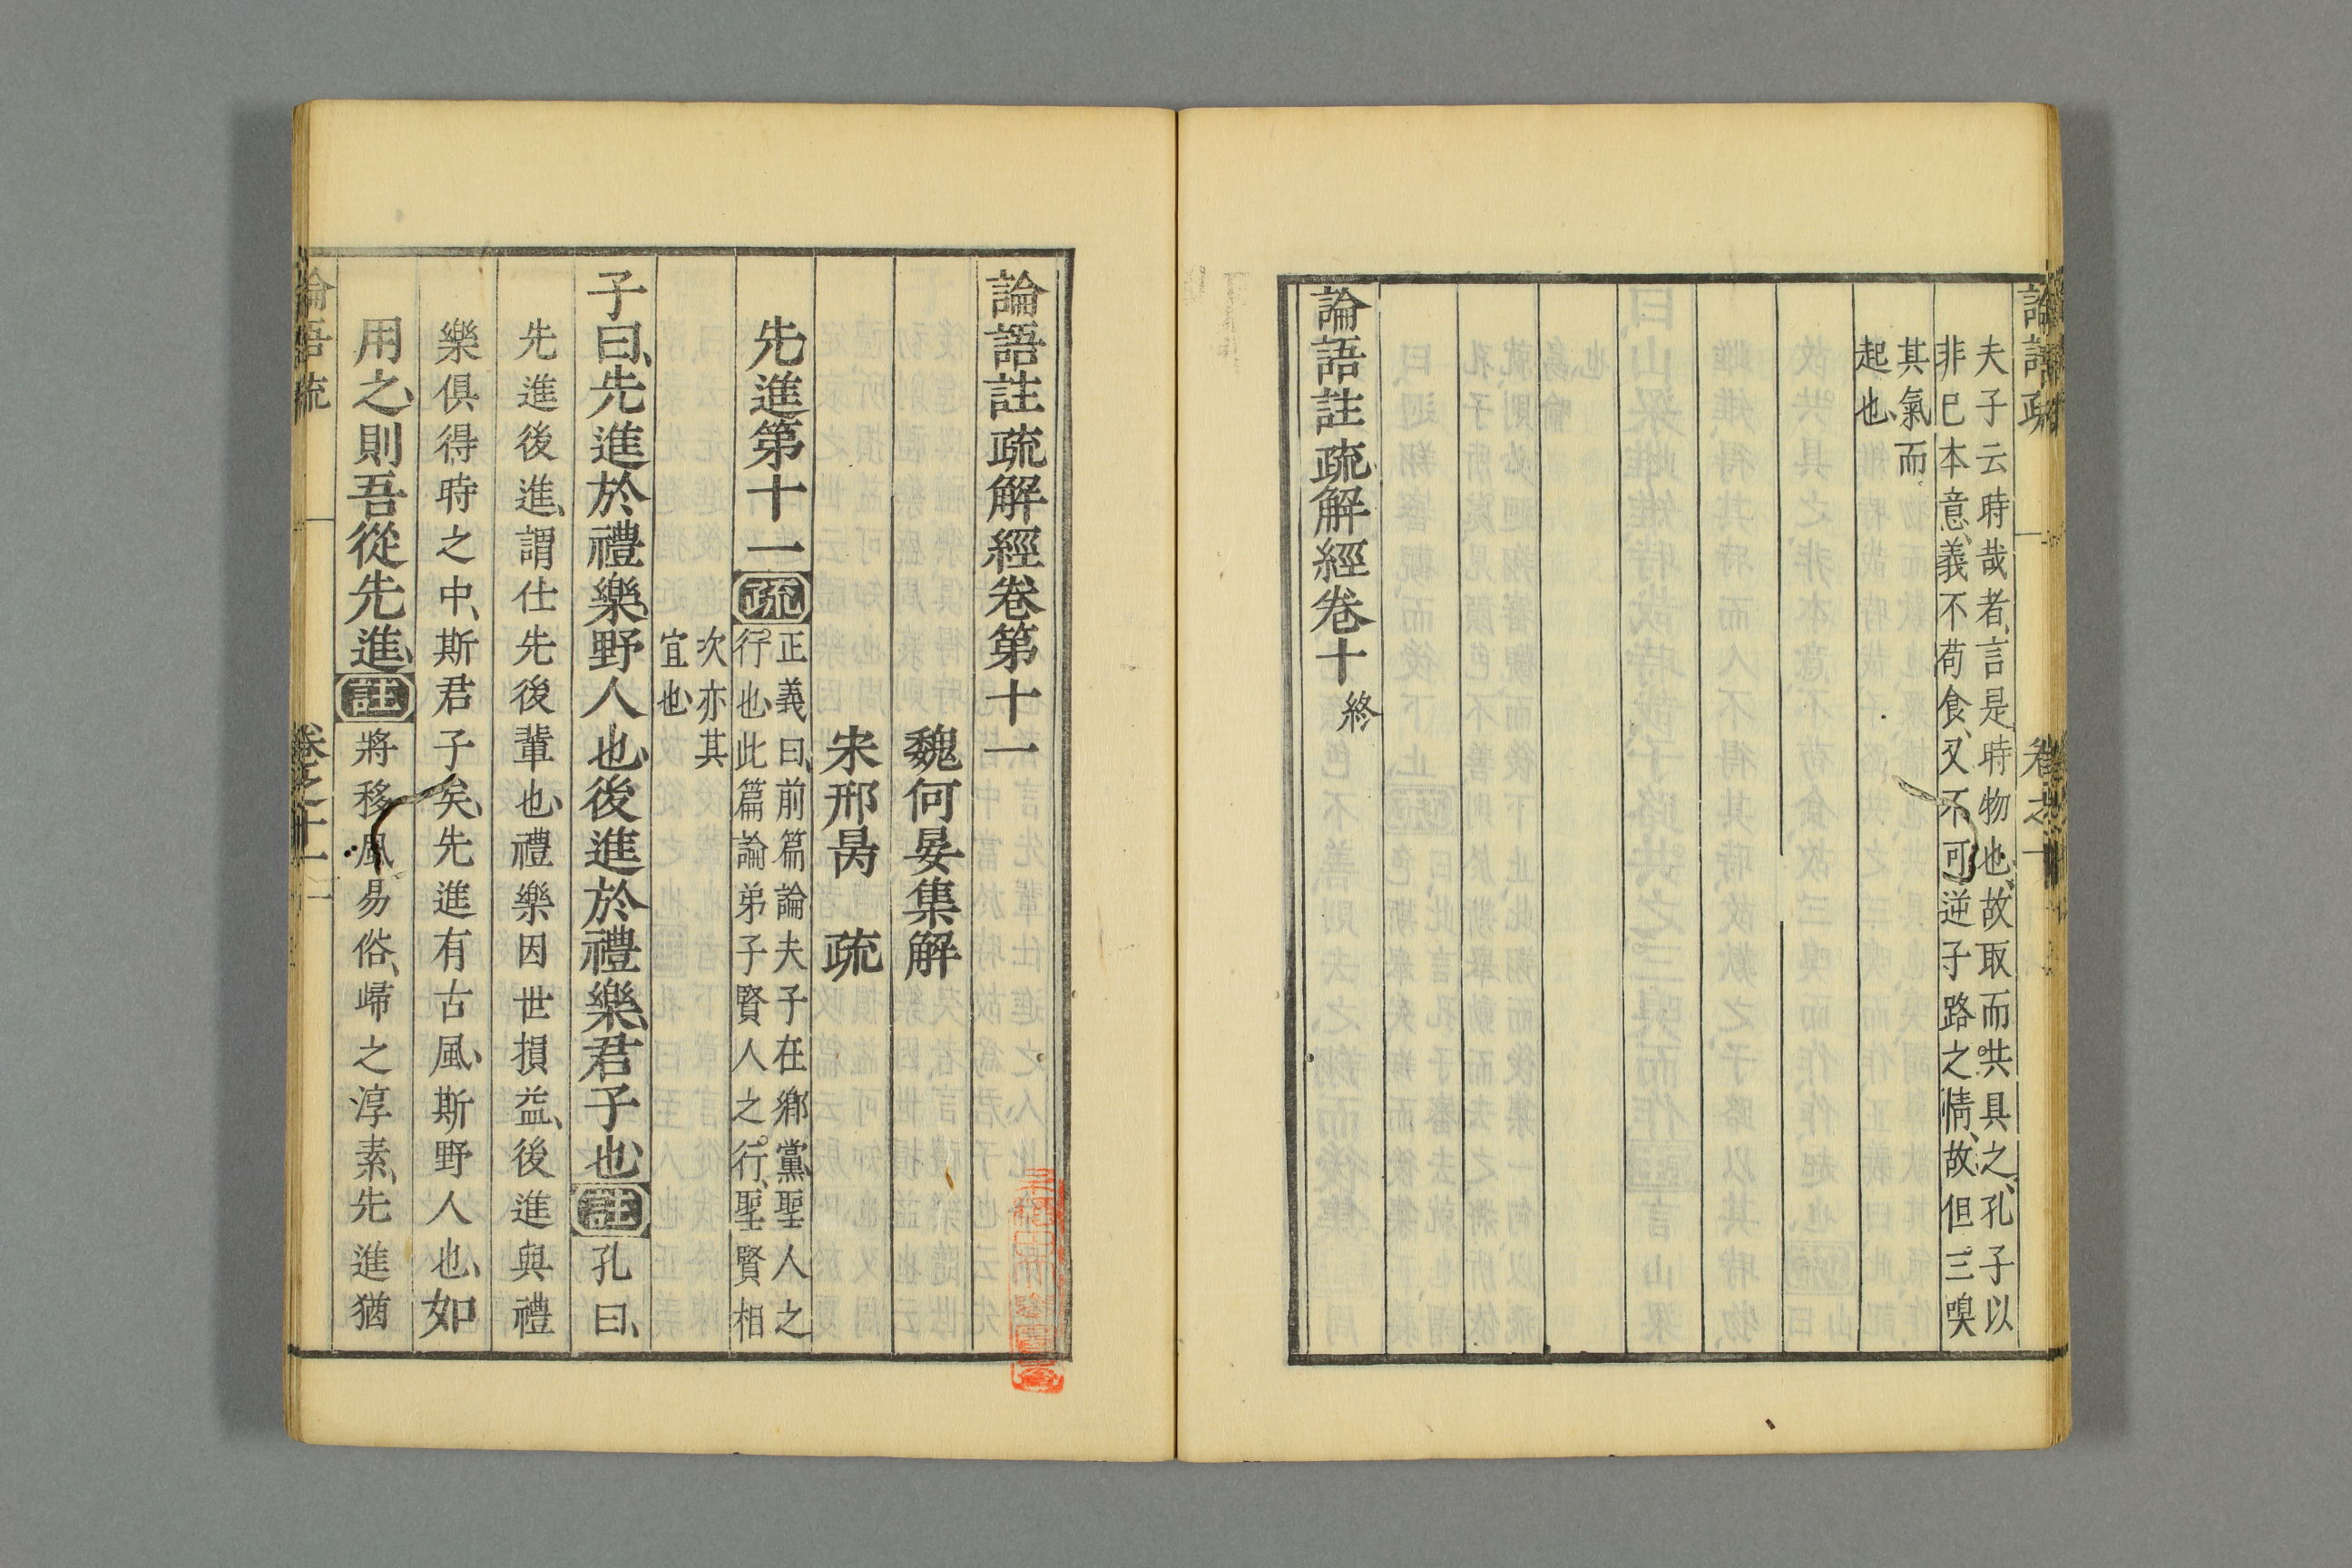 論語疏
卷之十
夫子云時哉者、言是時物也、故取而共具之、孔子以
非已本意、義不苟食、又不可逆子路之情、故但三嗅
其氣而
起也
論語註疏解經卷十 終
論語註疏解經卷第十一
魏何晏集解
宋邢昺 疏
先進第十一 疏
正義曰、前篇論夫子在鄉黨聖人之
行也、此篇論弟子賢人之行、聖賢相
次亦其
宜也
子曰、先進於禮樂、野人也、後進於禮樂、君子也、註 孔曰、
先進後進、謂仕先後輩也、禮樂因世損益、後進與禮
樂俱得時之中、斯君子矣、先進有古風、斯野人也、如
用之、則吾從先進、註 將移風易俗、歸之淳素、先進猶
論語疏
卷之十一